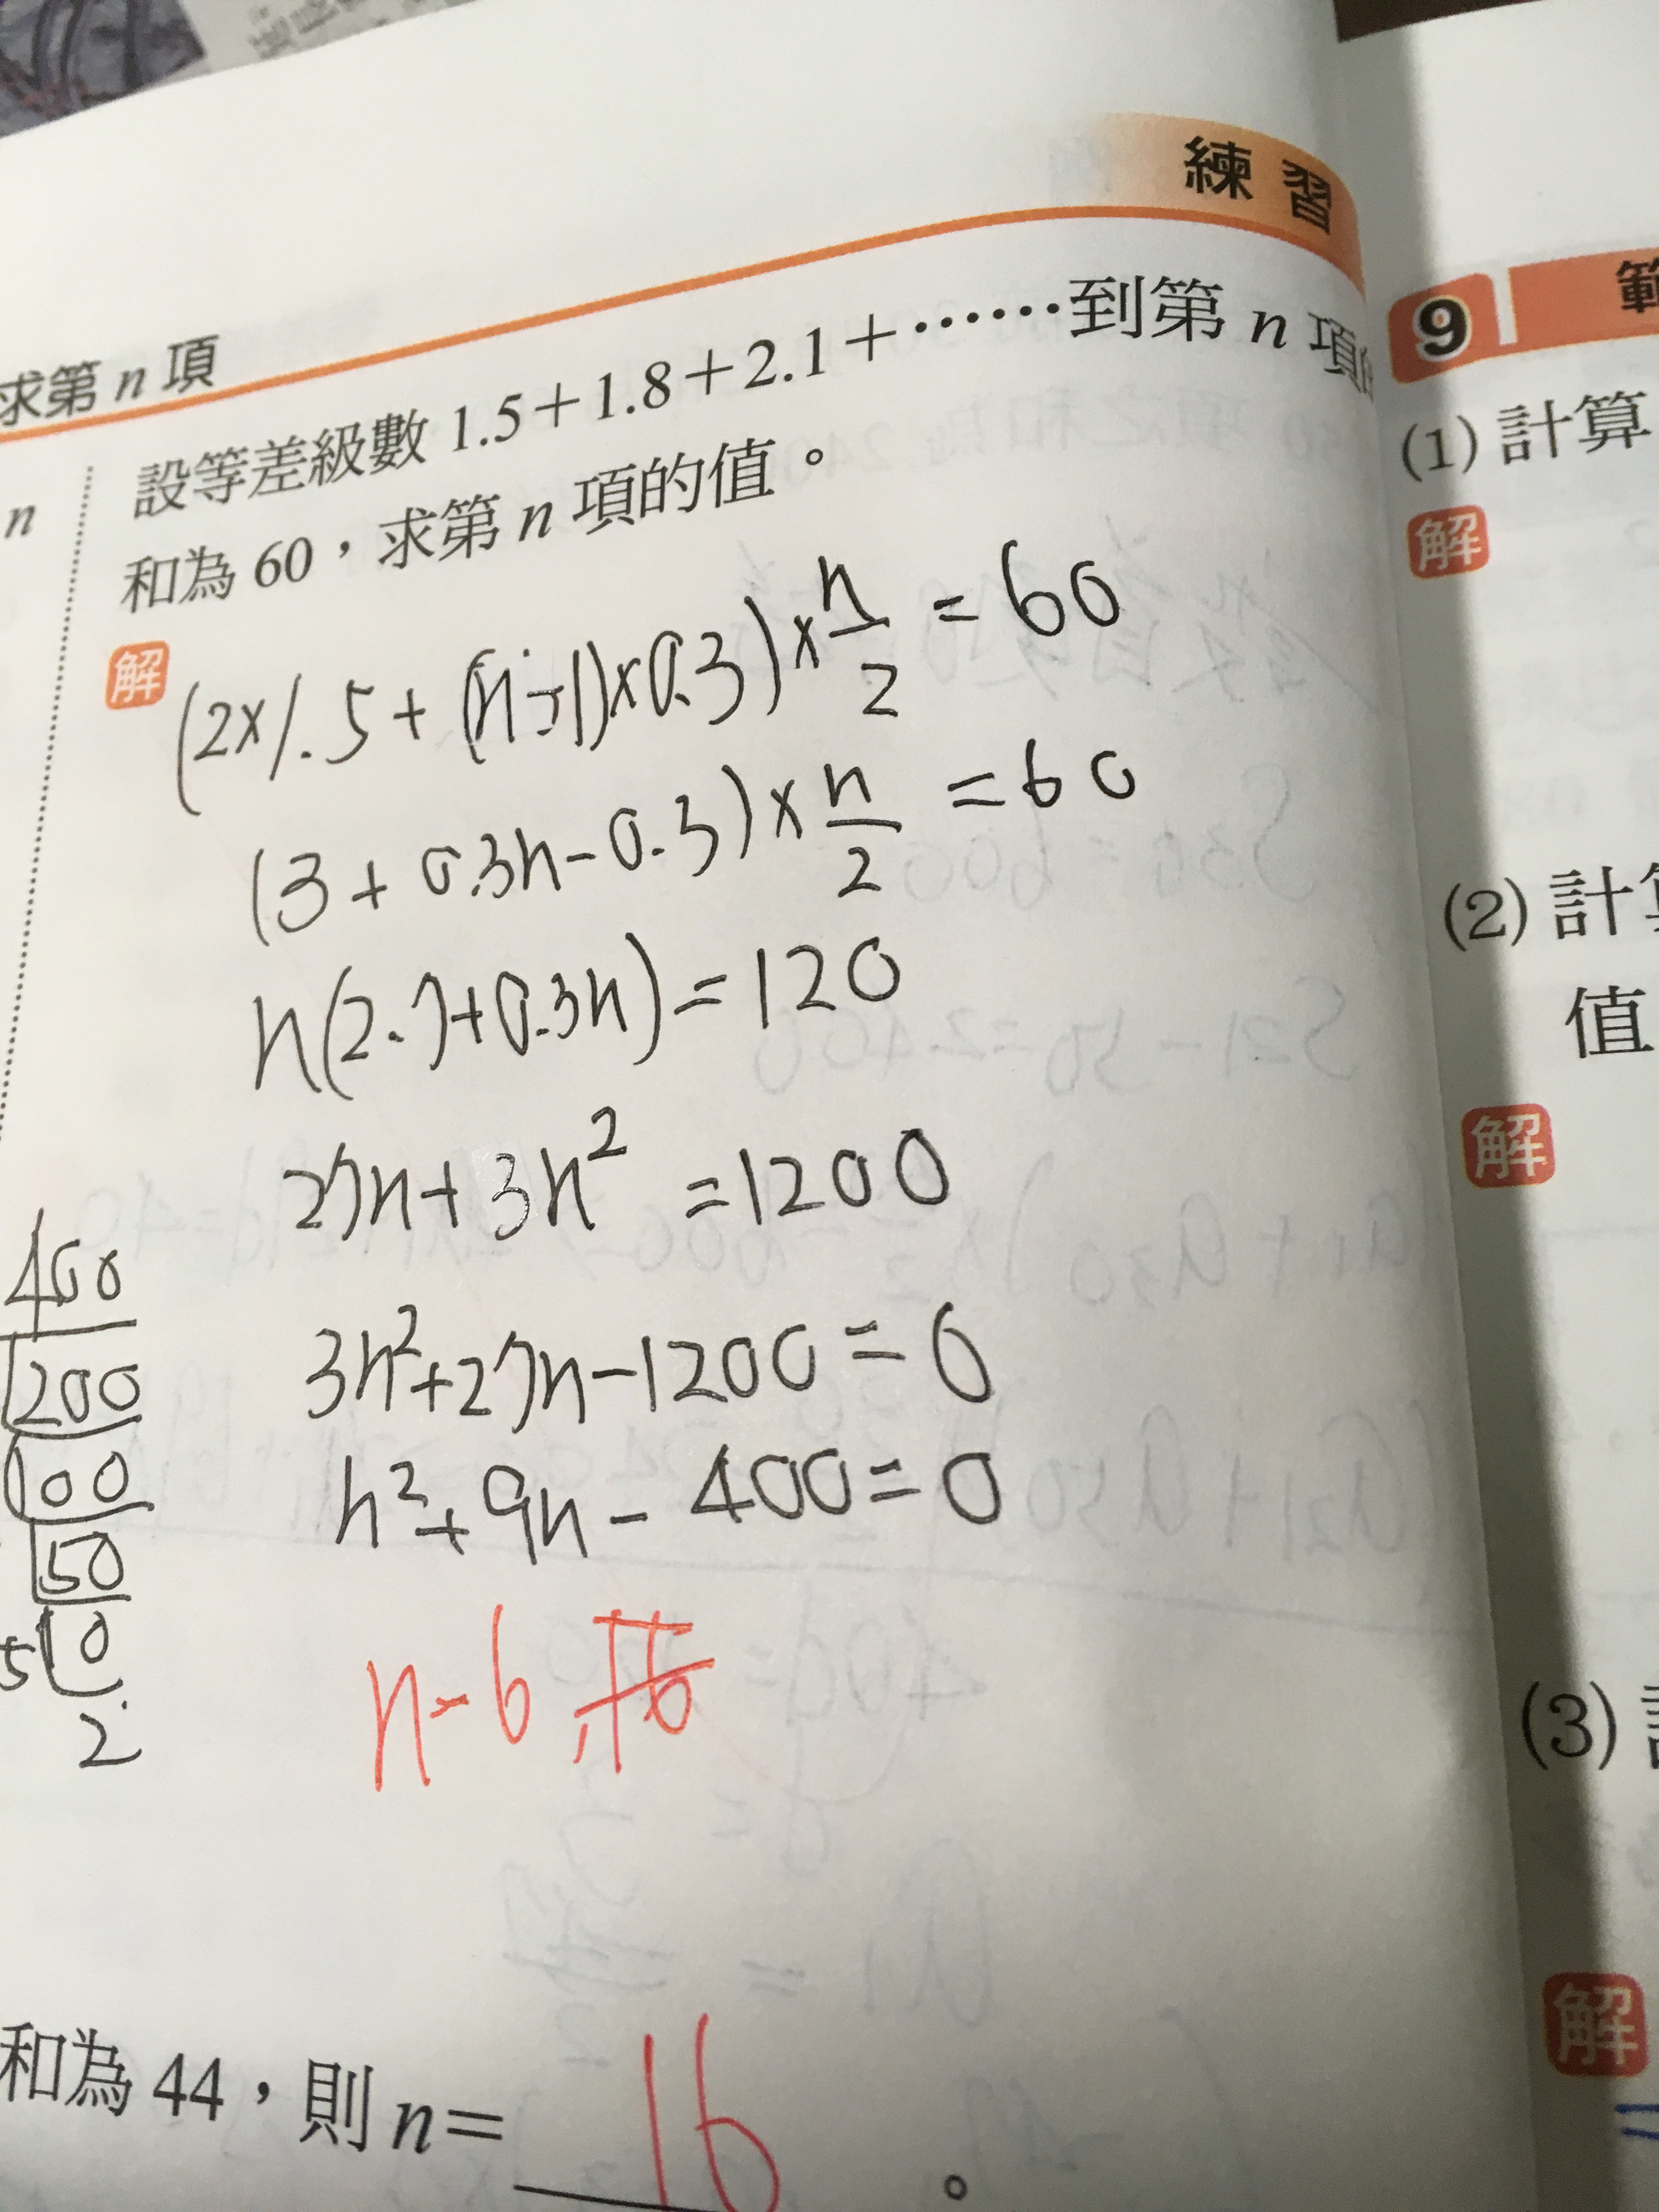 練習
求第 n 項
設等差級數 1.5＋1.8＋2.1＋……到第 n 項
和為 60，求第 n 項的值。
n
解
(2×1.5+(n-1)×0.3)×n/2=60
(3+0.3n-0.3)×n/2=60
n(2.7+0.3n)=120
27n+3n²=1200
3n²+27n-1200=0
n²+9n-400=0
400
200
100
50
5 10
2
和為 44，則 n＝16。
9
(1) 計算
解
(2) 計
值
解
(3)
解